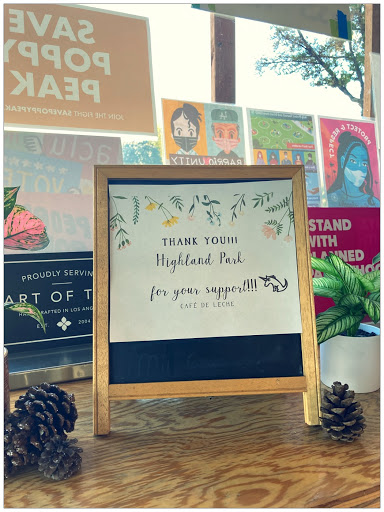 SAVE
POPPY
PEAK
JOIN THE FIGHT SAVEPOPPYPEAK
PROTECT & RESPECT
VOTE
PROUDLY SERVIN
ART OF T
HANDCRAFTED IN LOS ANGELES
EST. 2004
THANK YOU!!!
Highland Park
for your support!!!!
CAFÉ DE LECHE
STAND
WITH
PLANNED